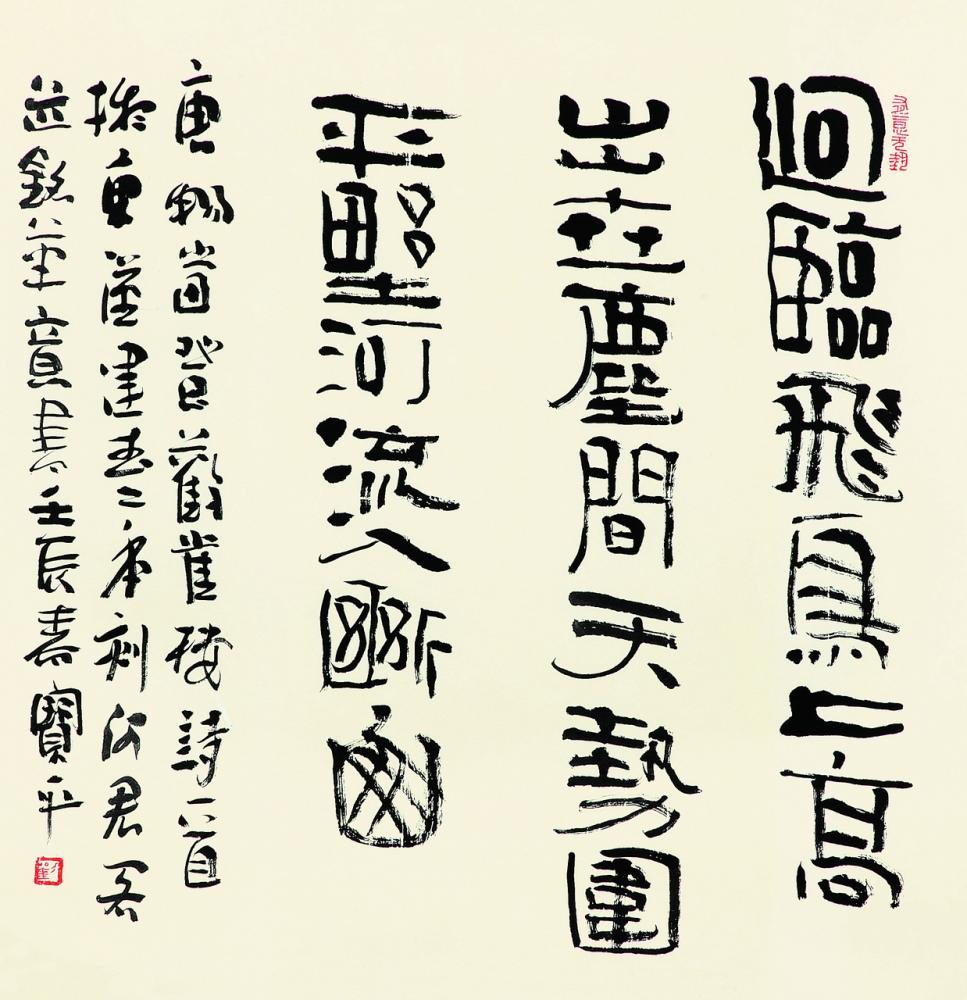 迥臨飛鳥上高
出世塵間天勢圍
平野河流入斷山
唐暢當登鸛雀樓詩一首
擬東漢建武二年刻何君閣
道銘筆意書壬辰春寶平